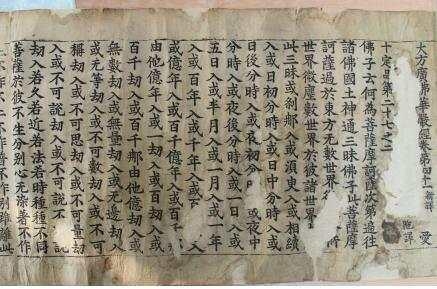 大方廣佛華嚴經卷第四十一 新譯
十定品第二十七之二
佛子云何為菩薩摩訶薩次第遍往
諸佛國土神通三昧佛子此菩薩摩
訶薩過於東方無數世界
世界微塵數世界於彼諸世界
此三昧或刹那入或須臾入或相續
入或日初分時入或日中分時入或
日後分時入或夜初分 或夜中
分時入或夜後分時入或一日入或
五日入或半月入或一月入或一年
入或百年入 入
或億年入或百千億年入或百千
由他億年入或一劫入或百劫入
百千劫入或百千那由他億劫入或
無數劫入或無量劫入或無邊劫入
或無等劫入或不可數劫入或不可
稱劫入或不可思劫入或不可量劫
入或不可說劫入或不可說不
劫入若久若近若法若時種種不同
菩薩於彼不生分別心無染著不作
二不作不二不作普不作別雖離此